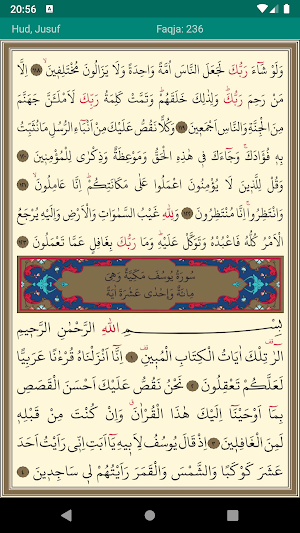 20:56
Hud, Jusuf Faqja: 236
وَلَوْ شَٓاءَ رَبُّكَ لَجَعَلَ النَّاسَ اُمَّةً وَاحِدَةً وَلَا يَزَالُونَ مُخْتَلِف۪ينَۙ ﴿١١٨﴾ اِلَّا
مَنْ رَحِمَ رَبُّكَۜ وَلِذٰلِكَ خَلَقَهُمْۜ وَتَمَّتْ كَلِمَةُ رَبِّكَ لَاَمْلَـَٔنَّ جَهَنَّمَ
مِنَ الْجِنَّةِ وَالنَّاسِ اَجْمَع۪ينَ ﴿١١٩﴾ وَكُلًّا نَقُصُّ عَلَيْكَ مِنْ اَنْبَٓاءِ الرُّسُلِ مَا نُثَبِّتُ
بِه۪ فُؤٰادَكَۚ وَجَٓاءَكَ ف۪ي هٰذِهِ الْحَقُّ وَمَوْعِظَةٌ وَذِكْرٰى لِلْمُؤْمِن۪ينَ ﴿١٢٠﴾
وَقُلْ لِلَّذ۪ينَ لَا يُؤْمِنُونَ اعْمَلُوا عَلٰى مَكَانَتِكُمْۜ اِنَّا عَامِلُونَۙ ﴿١٢١﴾
وَانْتَظِرُواۚ اِنَّا مُنْتَظِرُونَ ﴿١٢٢﴾ وَلِلّٰهِ غَيْبُ السَّمٰوَاتِ وَالْاَرْضِ وَاِلَيْهِ يُرْجَعُ
الْاَمْرُ كُلُّهُ فَاعْبُدْهُ وَتَوَكَّلْ عَلَيْهِۜ وَمَا رَبُّكَ بِغَافِلٍ عَمَّا تَعْمَلُونَ
سُورَةُ يُوسُفَ مَكِّيَّةٌ وَهِيَ
مِائَةٌ وَاِحْدٰى عَشْرَةَ اٰيَةً
بِسْــــــمِ اللّٰهِ الرَّحْمٰنِ الرَّح۪يمِ
الٓرٰ۠ تِلْكَ اٰيَاتُ الْكِتَابِ الْمُب۪ينِ۠ ﴿١﴾ اِنَّٓا اَنْزَلْنَاهُ قُرْءٰنًا عَرَبِيًّا
لَعَلَّكُمْ تَعْقِلُونَ ﴿٢﴾ نَحْنُ نَقُصُّ عَلَيْكَ اَحْسَنَ الْقَصَصِ
بِمَٓا اَوْحَيْنَٓا اِلَيْكَ هٰذَا الْقُرْاٰنَۗ وَاِنْ كُنْتَ مِنْ قَبْلِه۪
لَمِنَ الْغَافِل۪ينَ ﴿٣﴾ اِذْ قَالَ يُوسُفُ لِاَب۪يهِ يَٓا اَبَتِ اِنّ۪ي رَاَيْتُ اَحَدَ
عَشَرَ كَوْكَبًا وَالشَّمْسَ وَالْقَمَرَ رَاَيْتُهُمْ ل۪ي سَاجِد۪ينَ ﴿٤﴾